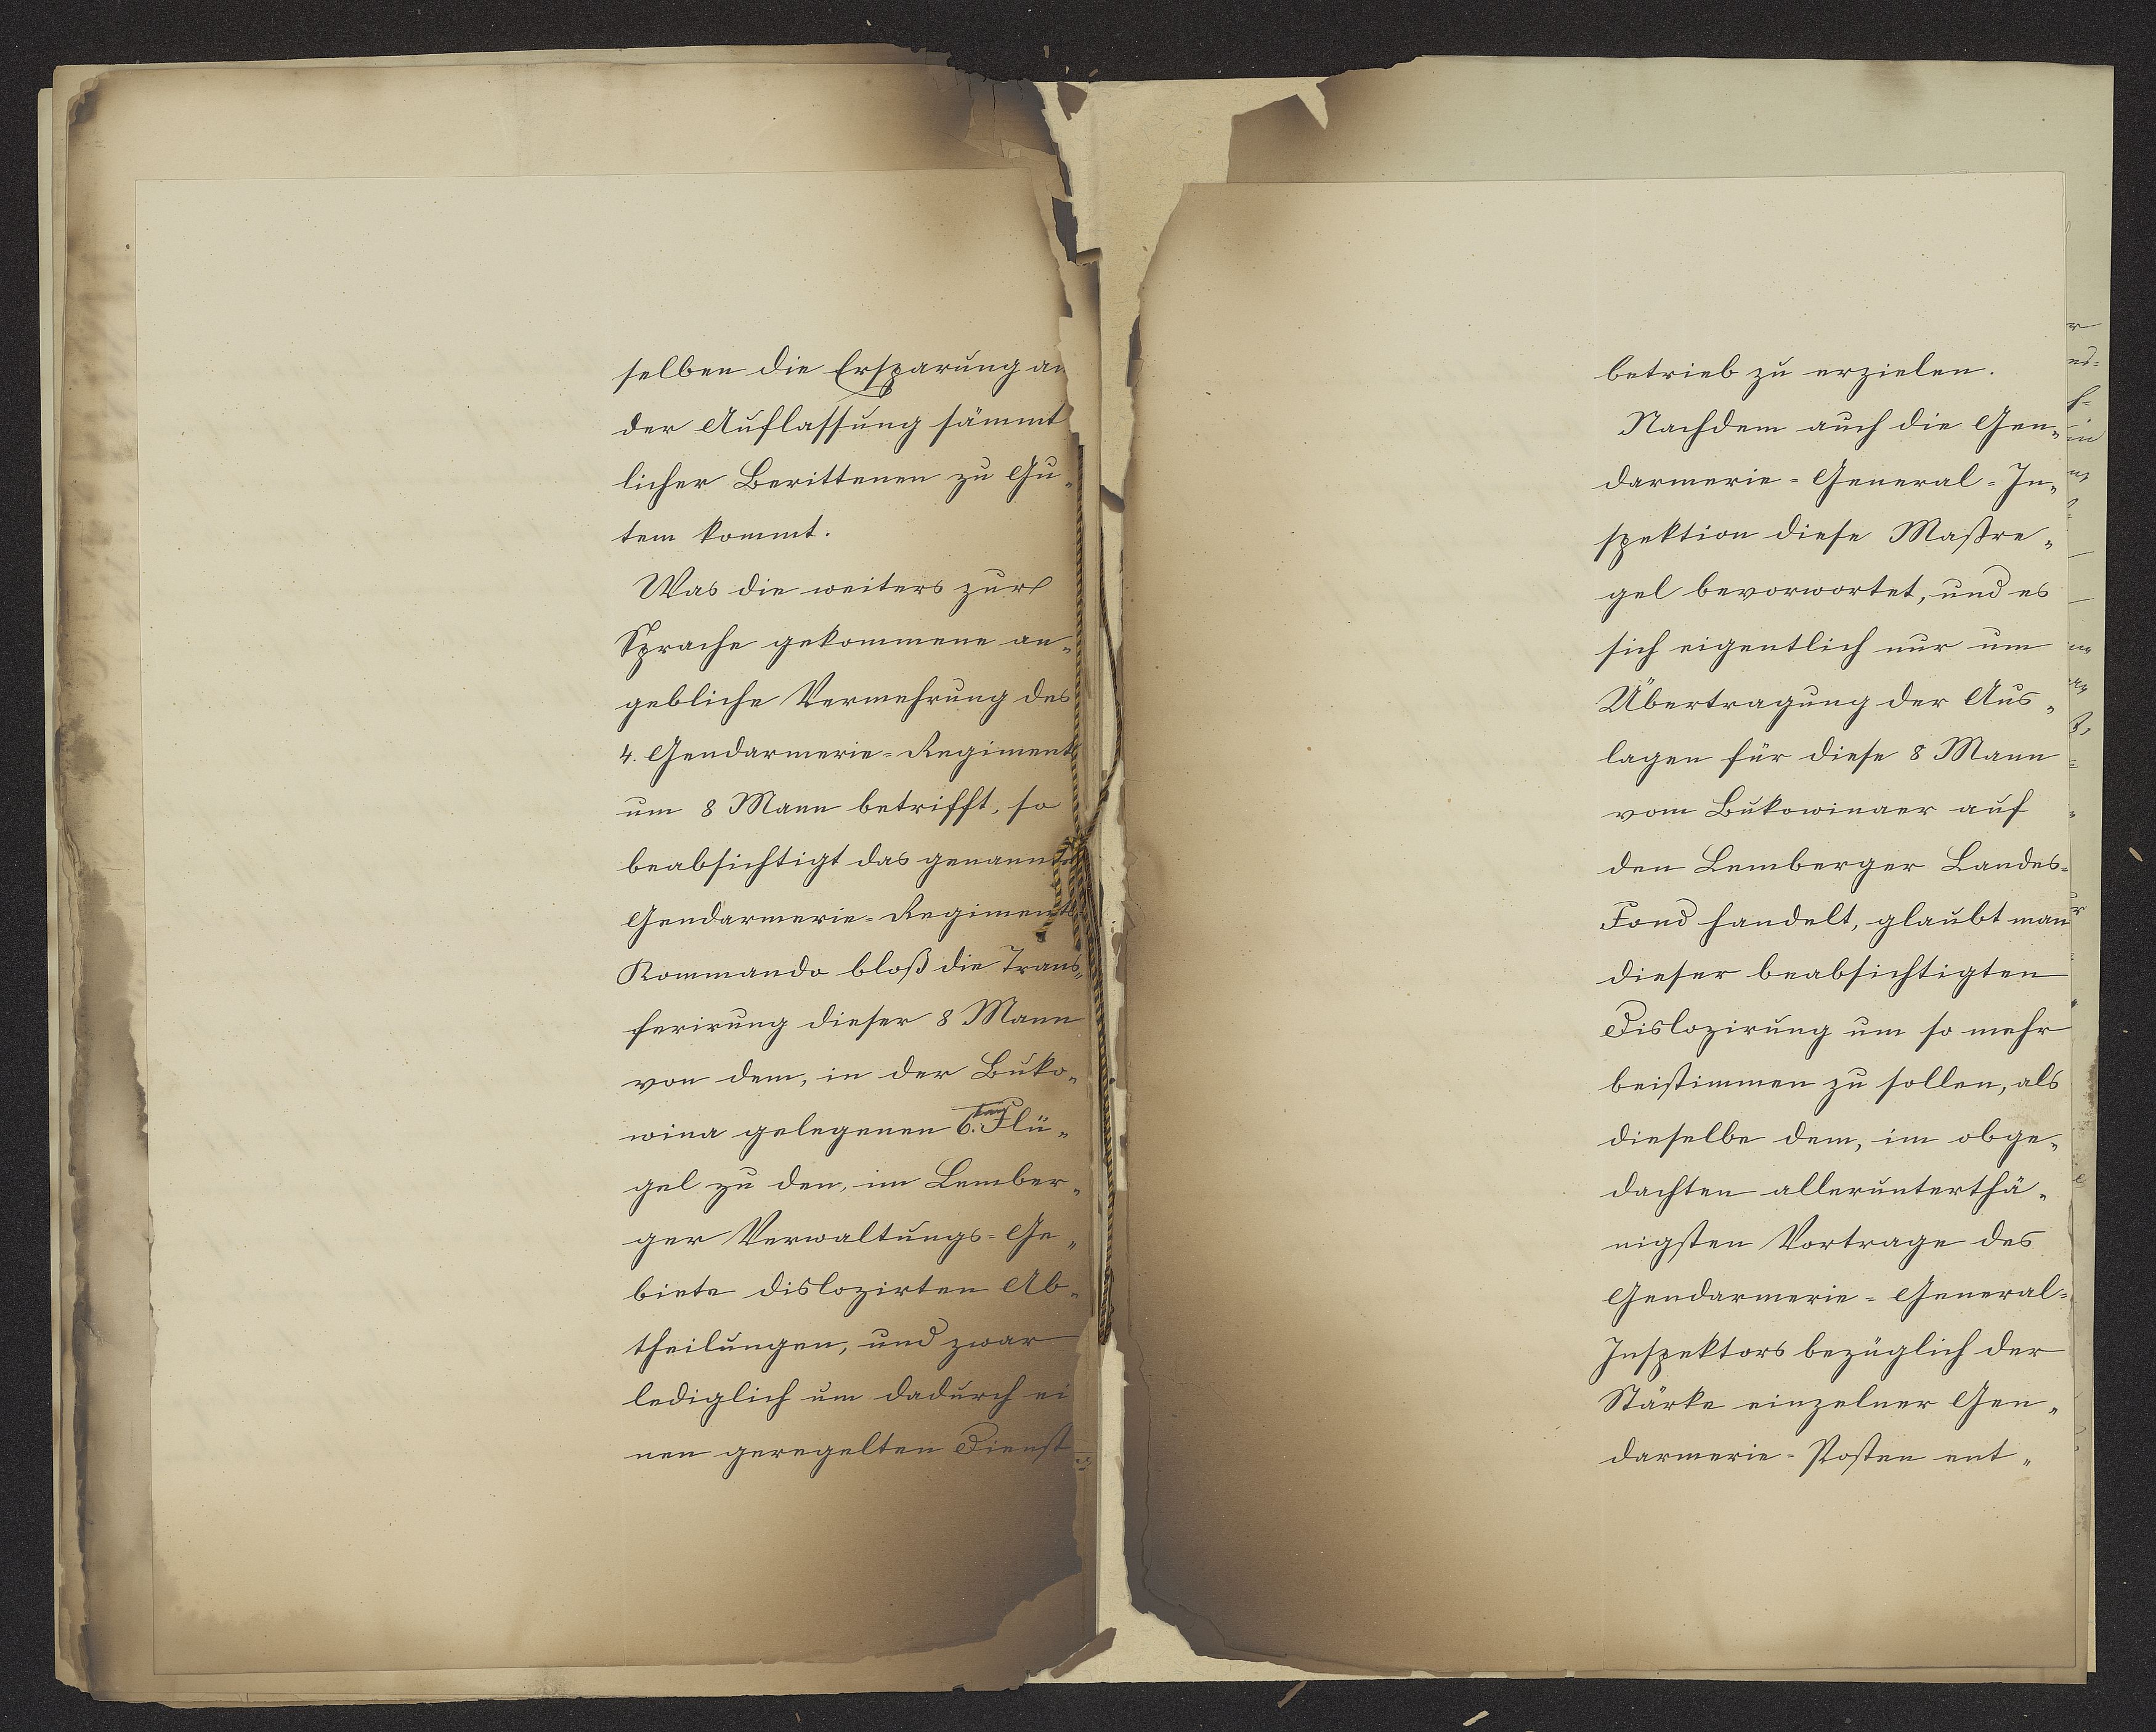 selben die Ersparung an
der Auflassung sämmt
licher Berittenen zu Gu„
tem kommt.
Was die weiters zur
Sprache gekommene an„
gebliche Vermehrung des
4. Gendarmerie=Regiments
um 8 Mann betrifft, so
beabsichtigt das genannte
Gendarmerie=Regiments
Kommando bloß die Trans„
ferirung dieser 8 Mann
von dem, in der Buko„
wina gelegenen 6. Flü„
gel zu den, im Lember„
ger Verwaltungs=Ge„
biete dislozirten Ab„
theilungen, und zwar
lediglich um dadurch ei
nen geregelten Dienst
betrieb zu erzielen.
Nachdem auch die Gen„
darmerie=General=In„
spektion diese Maßre„
gel bevorwortet, und es
sich eigentlich nur um
Übertragung der Aus„
lagen für diese 8 Mann
vom Bukowinaer auf
den Lemberger Landes=
Fond handelt, glaubt man
dieser beabsichtigten
Dislozirung um so mehr
beistimmen zu sollen, als
dieselbe dem, im obge„
dachten allerunterthä„
nigsten Vortrage des
Gendarmerie=General=
Inspektors bezüglich der
Stärke einzelner Gen„
darmerie=Posten ent„